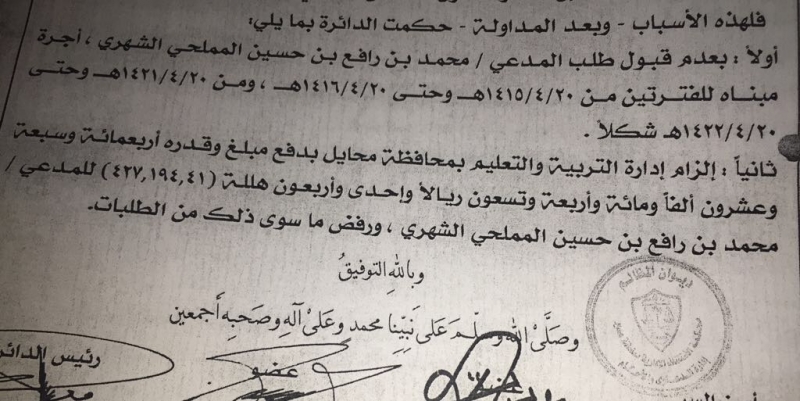 فلهذه الأسباب - وبعد المداولة - حكمت الدائرة بما يلي:
أولاً : بعدم قبول طلب المدعي / محمد بن رافع بن حسين المملحي الشهري ، أجرة
مبناه للفترتين من ١٤١٥/٤/٢٠هـ وحتى ١٤١٦/٤/٢٠هـ ، ومن ١٤٢١/٤/٢٠هـ وحتى
١٤٢٢/٤/٢٠هـ شكلاً .
ثانياً : إلزام إدارة التربية والتعليم بمحافظة محايل بدفع مبلغ وقدره أربعمائة وسبعة
وعشرون ألفاً ومائة وأربعة وتسعون ريالاً وإحدى وأربعون هللة (٤٢٧,١٩٤,٤١) للمدعي /
محمد بن رافع بن حسين المملحي الشهري ، ورفض ما سوى ذلك من الطلبات.
وبالله التوفيقُ
وصلَّىْ اللهُ وسلَّمَ عَلَى نَبِيِّنا محمد وعَلَىْ آلِهِ وصَحبِهِ أجمعين
ديوان المظالم
رئيس الدائرة
عضو
عضو